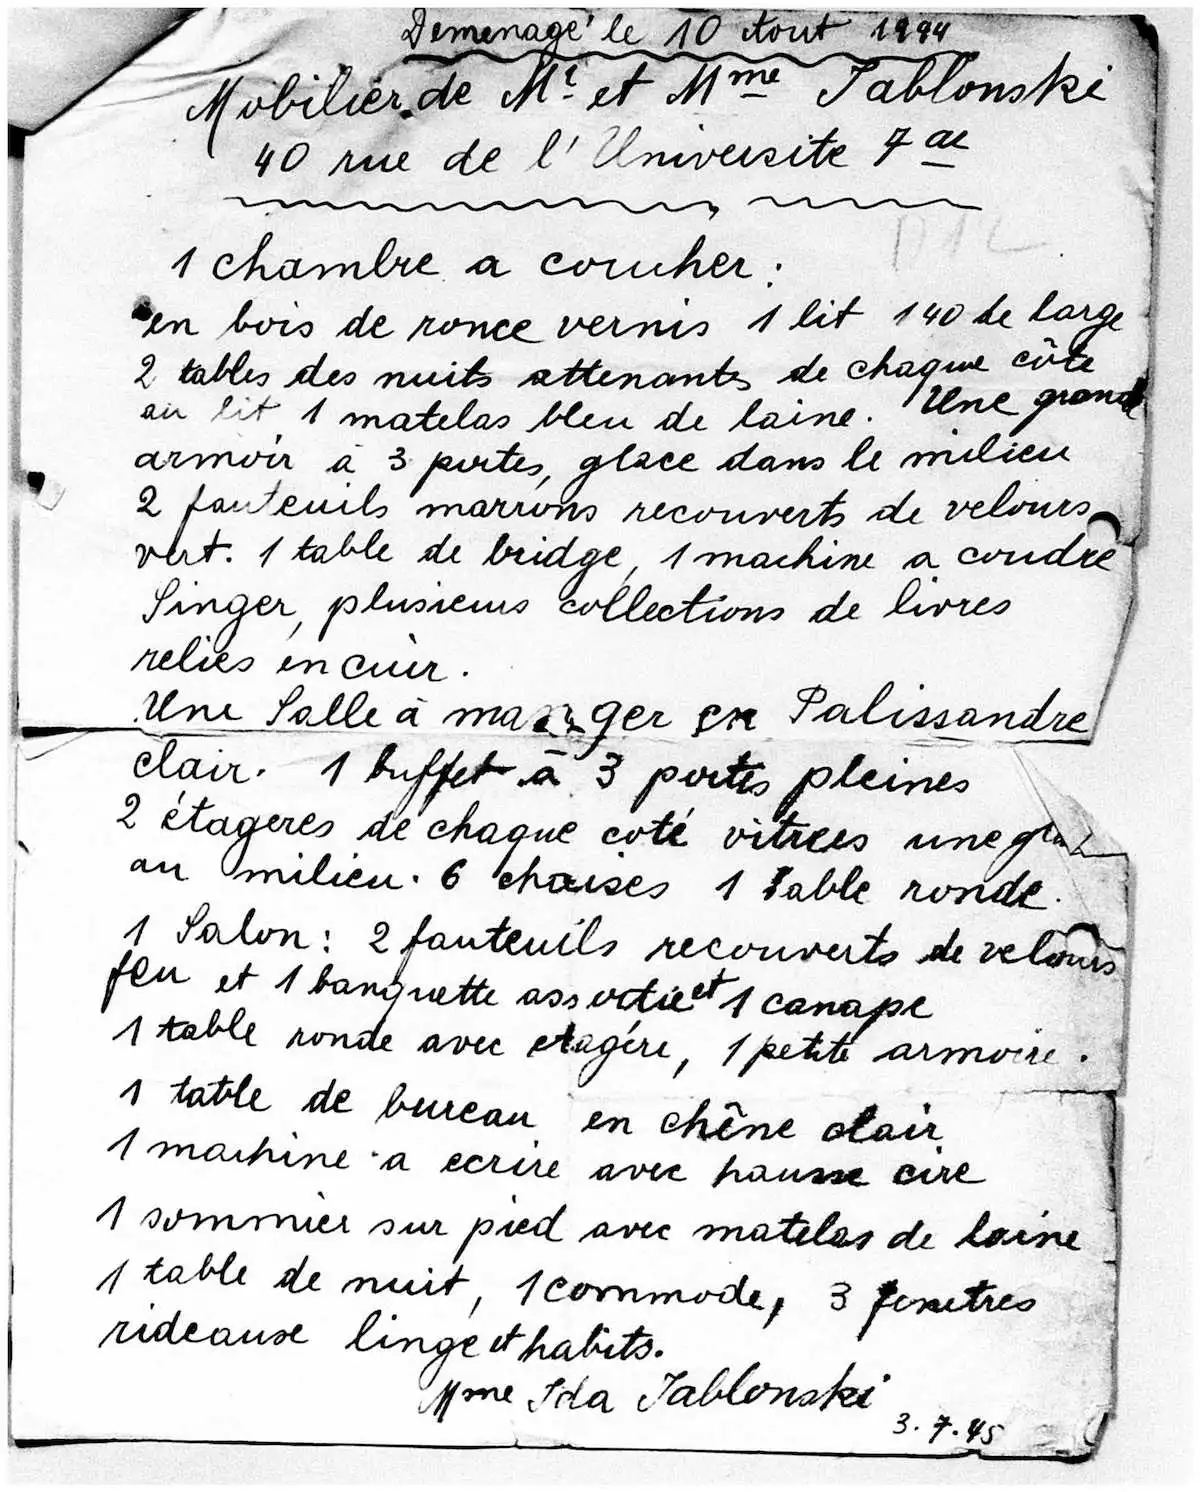 Demenagé le 10 Aout 1944
Mobilier de Mr et Mme Jablonski
40 rue de l'Universite 7 ae
1 chambre a coucher :
en bois de ronce vernis 1 lit 140 de large
2 tables des nuits attenants de chaque côte
au lit 1 matelas bleu de laine. Une grande
armoir à 3 portes, glace dans le milieu
2 fauteuils marrons recouverts de velours
vert. 1 table de bridge, 1 machine a coudre
Singer, plusieurs collections de livres
relies en cuir.
Une Salle à manger en Palissandre
clair. 1 buffet à 3 portes pleines
2 étageres de chaque coté vitrees une
au milieu. 6 chaises 1 table ronde.
1 Salon : 2 fauteuils recouverts de velours
feu et 1 banquette assortie et 1 canape
1 table ronde avec etagére, 1 petite armoire.
1 table de bureau en chêne clair
1 machine a ecrire avec hausse cire
1 sommier sur pied avec matelas de laine
1 table de nuit, 1 commode, 3 fenetres
rideause linge et habits.
Mme Ida Jablonski
3.7.45